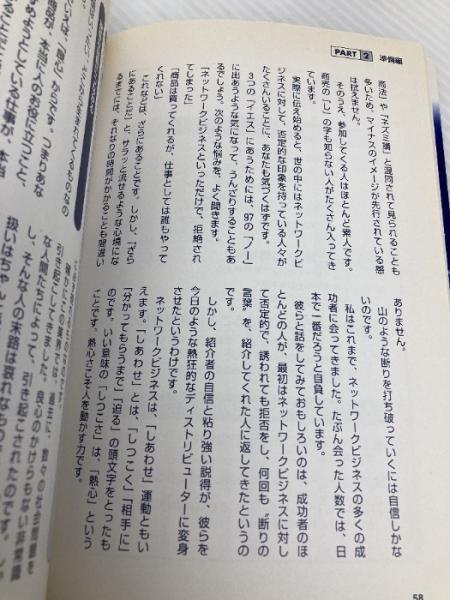 PART 2 準備編
商法」や「ネズミ講」と混同されて見られることも
多いため、マイナスのイメージが先行されている感
は拭えません。
そのうえ、参加してくる人はほとんど素人です。
商売の「し」の字も知らない人がたくさん入ってき
ています。
実際に伝え始めると、世の中にはネットワークビ
ジネスに対して、否定的な印象を持っている人々が
たくさんいることに、あなたも気づくはずです。
3つの「イエス」にあうためには、97の「ノー」
に出あうような気になって、うんざりすることもあ
るでしょう。次のような悩みを、よく聞きます。
「ネットワークビジネスといっただけで、拒絶され
てしまった」
「商品は買ってくれるが、仕事としては誰もやって
くれない」
これなどは、ざらにあることです。しかし、「ざら
にあることだ」と、サラッと流せるような心境にな
るまでには、それなりの時間がかかることも間違い
ありません。
山のような断りを打ち破っていくには自信しかな
いのです。
私はこれまで、ネットワークビジネスの多くの成
功者に会ってきました。たぶん会った人数では、日
本で一番だろうと自負しています。
彼らと話をしてみておもしろいのは、成功者のほ
とんどの人が、最初はネットワークビジネスに対し
て否定的で、誘われても拒否をし、何回も〝断りの
言葉〟を、紹介してくれた人に返してきたというの
です。
しかし、紹介者の自信と粘り強い説得が、彼らを
今日のような熱狂的なディストリビューターに変身
させたというわけです。
ネットワークビジネスは、「しあわせ」運動ともい
えます。「しあわせ」とは、「しつこく」「相手に」
「分かってもらうまで」「迫る」の頭文字をとったも
のです。いい意味の「しつこさ」は、「熱心」という
ことです。熱心さこそ人を動かす力です。
58
つまりあな
商品が、本当に人のお役に立つこと
ようとしている仕事が、本当
引き起こしてきました。良心のかけらもない非常識
な人間たちによって、引き起こされたのです。
し、そんな人の末路は哀れなもの
扱いはちゃん